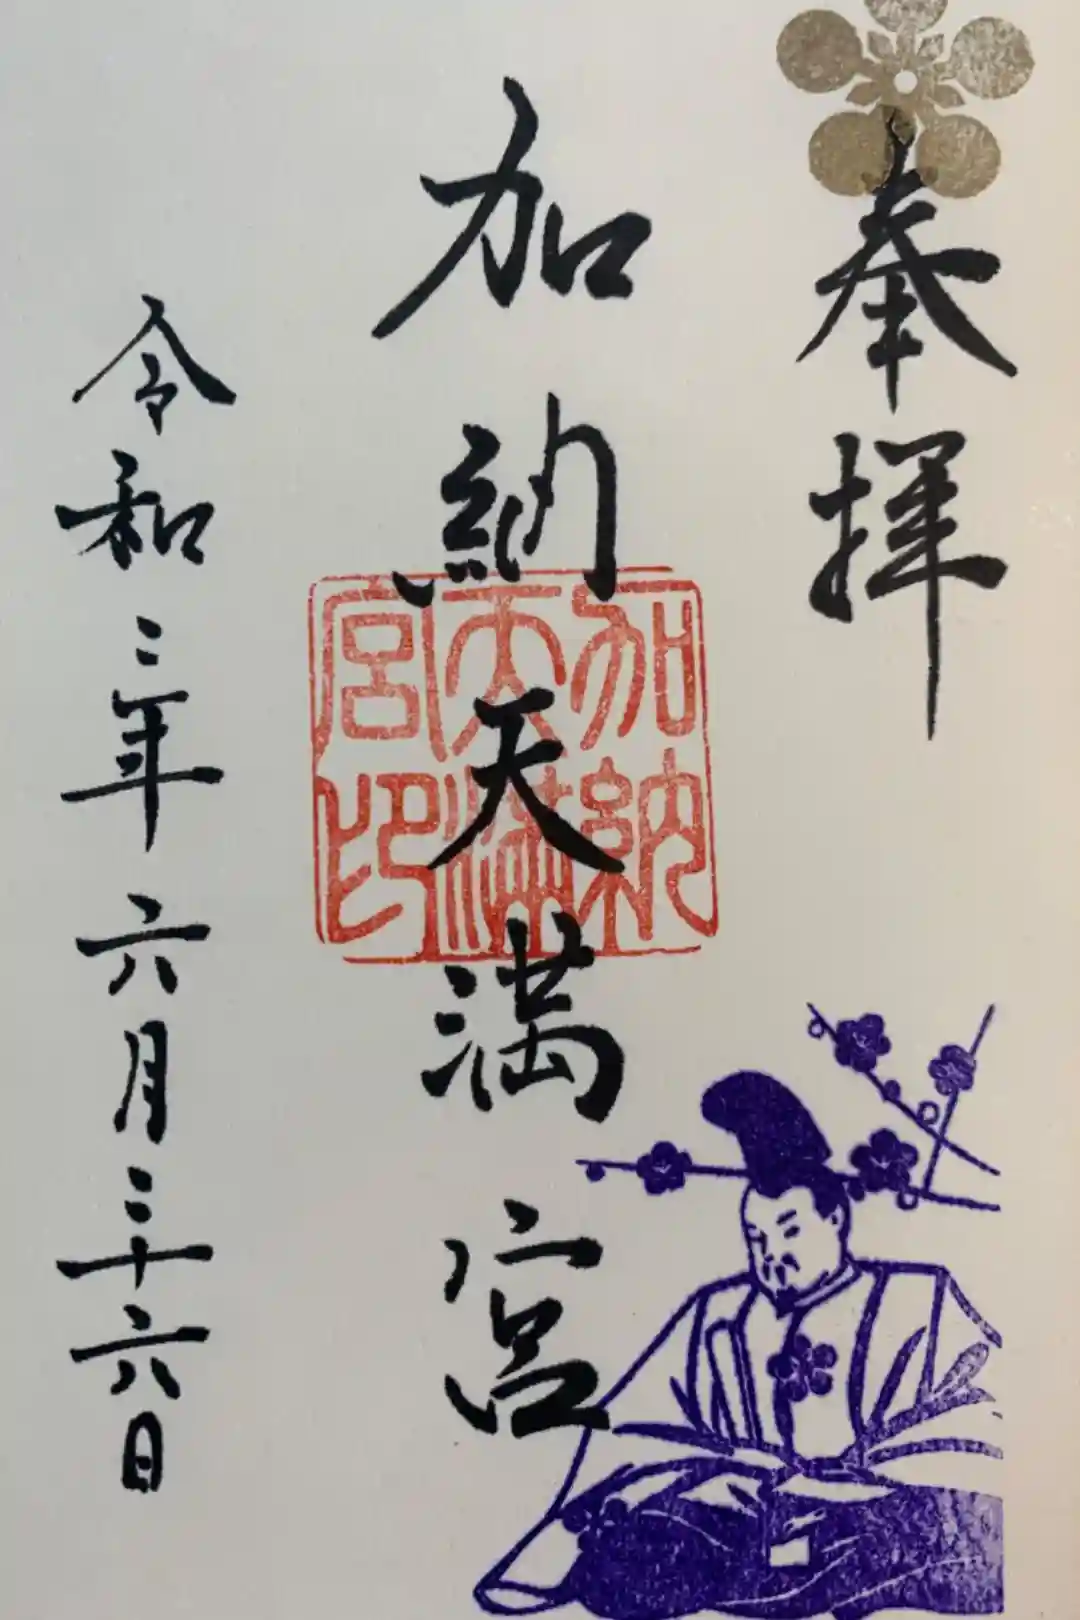 奉拝
加納天満宮
令和三年六月二十六日
加納
天満
宮印